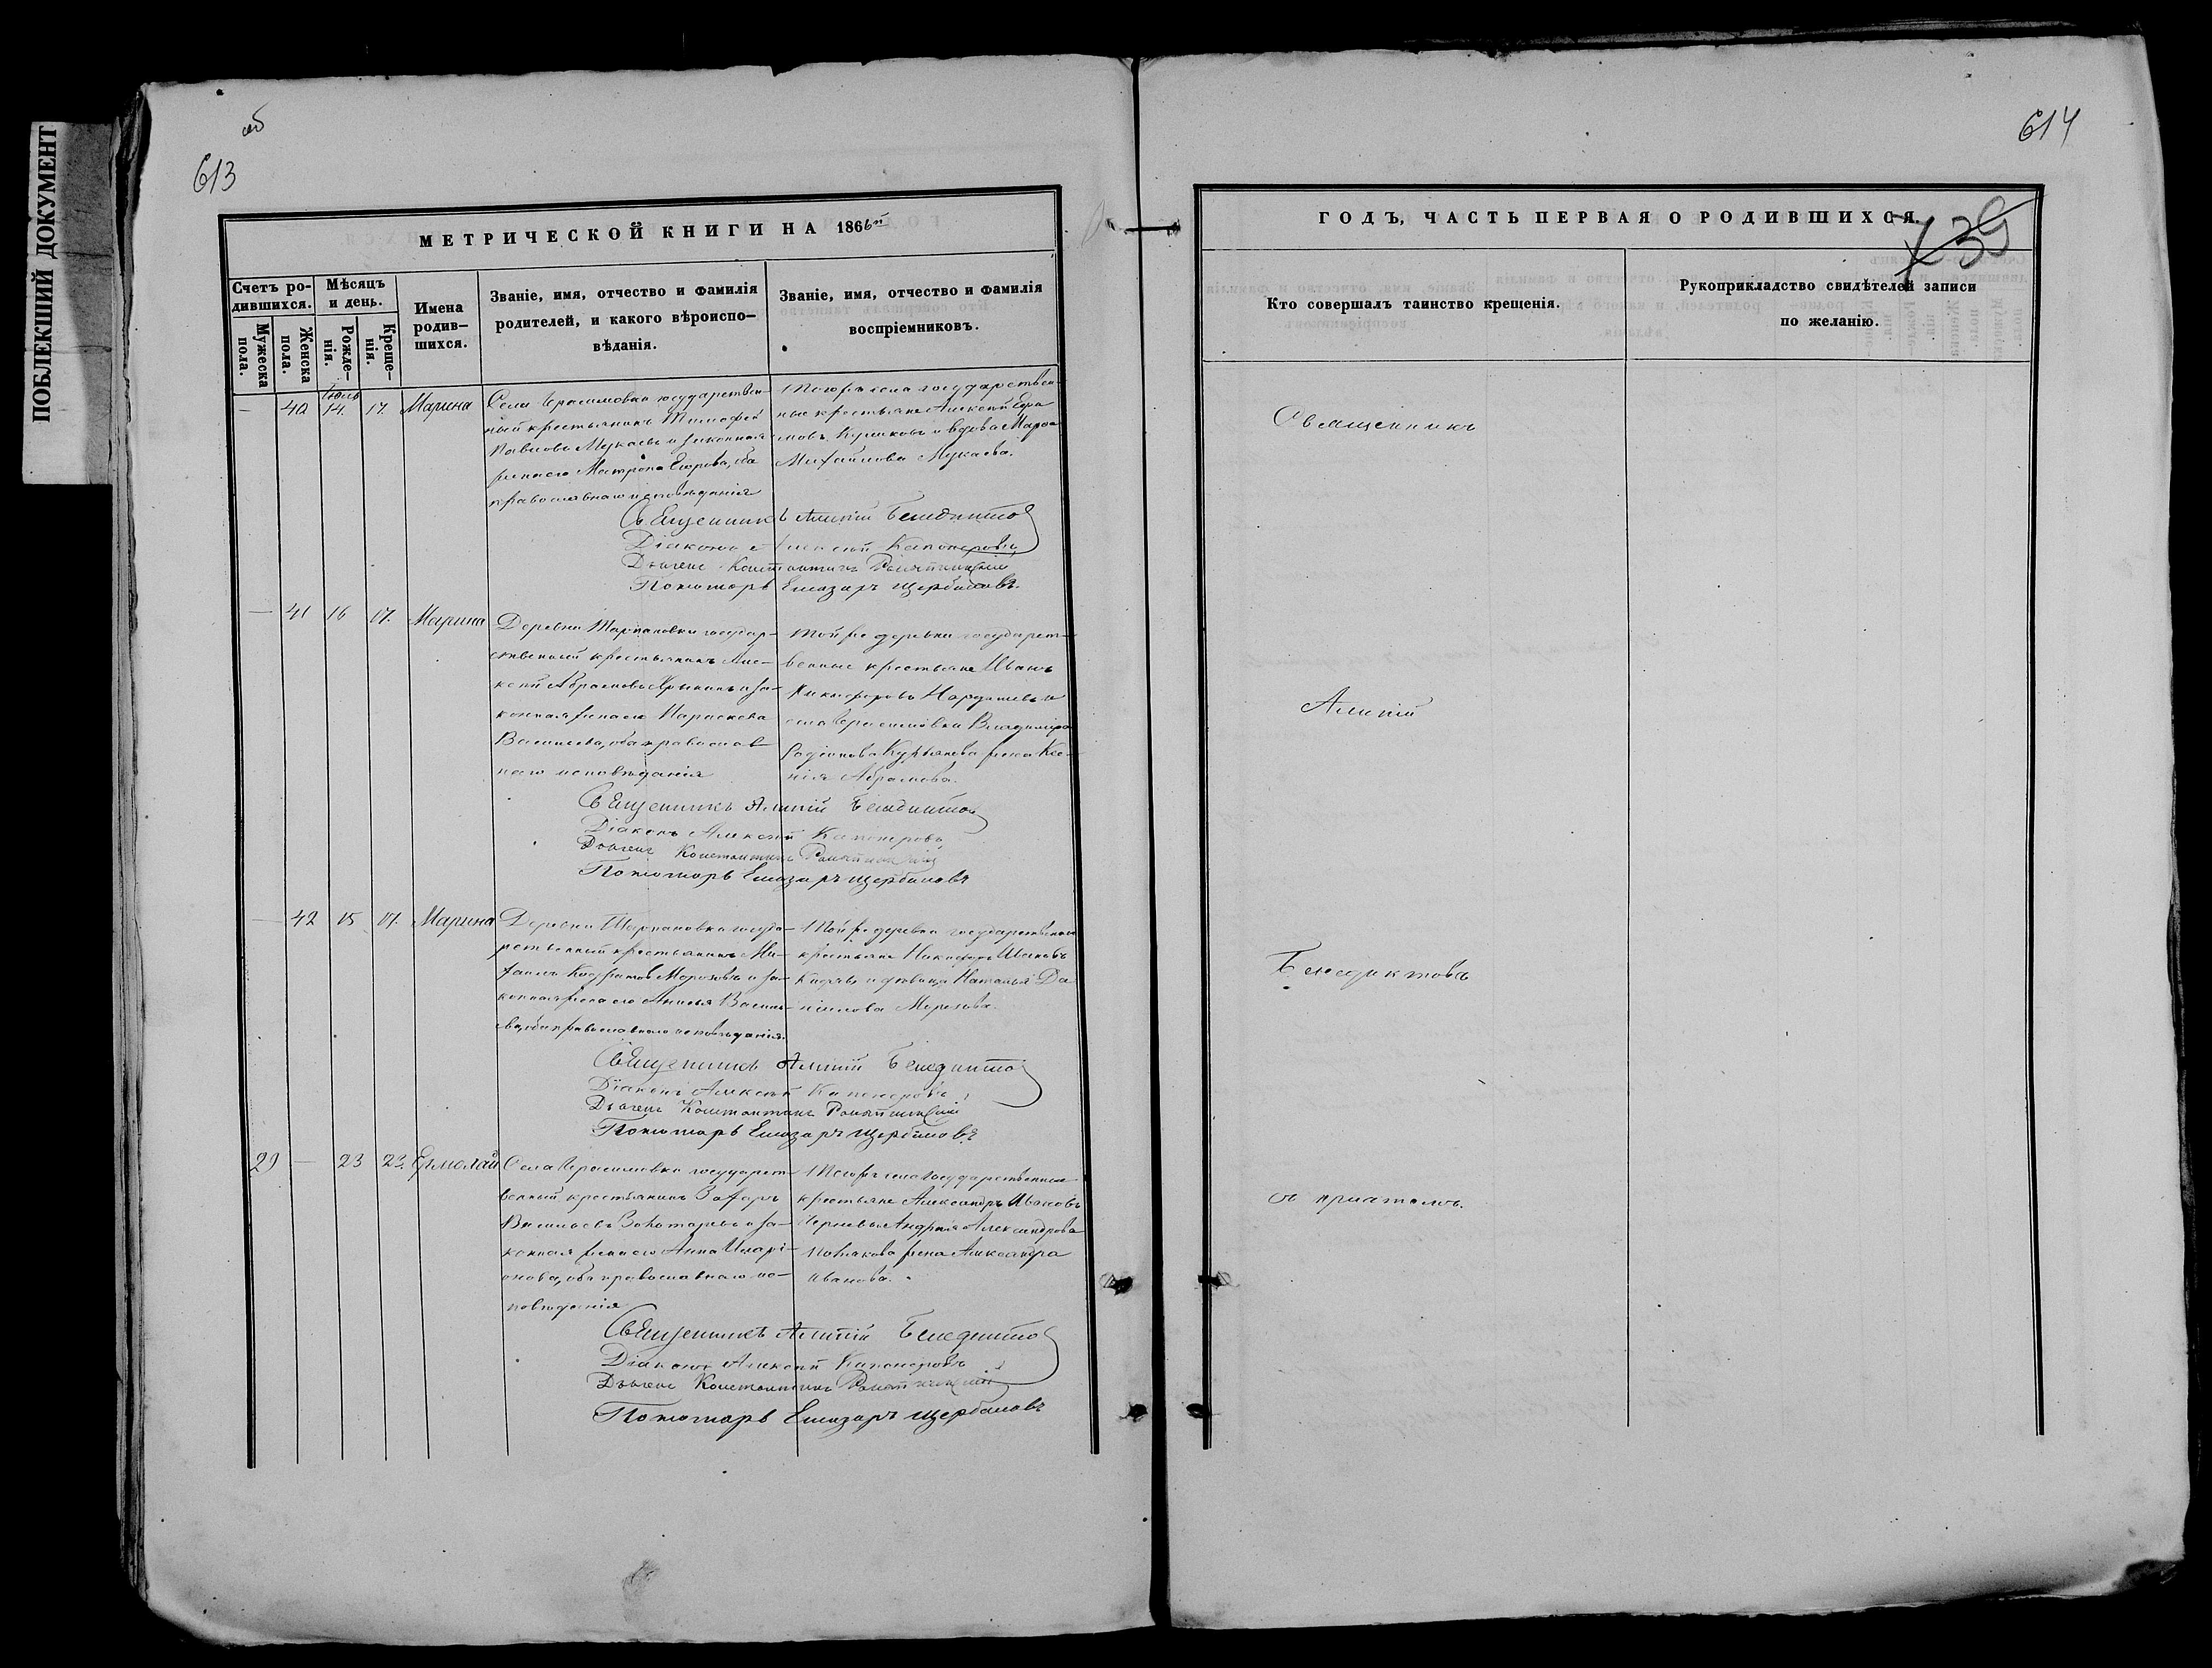 ПОБЛЕКШИЙ ДОКУМЕНТ
об
613
МЕТРИЧЕСКОЙ КНИГИ НА 1866й
Счетъ ро-
дившихся.
Мужеска
пола.
Женска
пола.
Мѣсяцъ
и день.
Рожде-
нія.
Креще-
нія.
Имена
родив-
шихся.
Званіе, имя, отчество и фамилія
родителей, и какого вѣроиспо-
вѣданія.
Званіе, имя, отчество и фамилія
воспріемниковъ.
Іюль
— 40 14. 17. Марина
Села Герасимовки государствен-
ный крестьянинъ Тимофей
Павловъ Мукаевъ и законная
жена его Матрона Егорова, оба
православнаго исповѣданія
Тогоже села государствен-
ные крестьяне Алексѣй Ефи-
мовъ Куликовъ и вдова Марѳа
Михайлова Мукаева.
Священникъ Алипій Бенедиктовъ
Діаконъ Алексѣй Капонеровъ
Дьячекъ Константинъ
Пономарь Елизаръ Щербаковъ.
— 41 16 17. Марина
Деревни Тарпановки государ-
ственный крестьянинъ Але-
ксѣй Абрамовъ и за-
конная жена его Параскева
Васильева, оба православ-
наго исповѣданія
Той же деревни государст-
венные крестьяне Иванъ
Никифоровъ и
села Герасимовки Владиміра
Родіонова жена Ксе-
нія Абрамова.
Священникъ Алипій Бенедиктовъ
Діаконъ Алексѣй Капонеровъ
Дьячекъ Константинъ
Пономарь Елизаръ Щербаковъ
— 42 15 17. Марина
Деревни Тарпановки госуда-
рственный крестьянинъ Ми-
хаилъ Кондратовъ Морозовъ и за-
конная жена его Анисья Василь-
ева, оба православнаго исповѣданія.
Той же деревни государственные
крестьяне Никифоръ Ивановъ
и дѣвица Наталья Да-
ниилова Морозова.
Священникъ Алипій Бенедиктовъ
Діаконъ Алексѣй Капонеровъ
Дьячекъ Константинъ
Пономарь Елизаръ Щербаковъ
29 — 23 23. Ермолай
Села Герасимовки государст-
венный крестьянинъ Захаръ
Васильевъ и за-
конная жена его Анна Иларі-
онова, оба православнаго ис-
повѣданія
Тогоже села государственные
крестьяне Александръ Ивановъ
Черневъ и Андрея Александрова
Полякова жена Александра
Иванова.
Священникъ Алипій Бенедиктовъ
Діаконъ Алексѣй Капонеровъ
Дьячекъ Константинъ
Пономарь Елизаръ Щербаковъ
614
ГОДЪ, ЧАСТЬ ПЕРВАЯ О РОДИВШИХСЯ.
139
Кто совершалъ таинство крещенія.
Рукоприкладство свидѣтелей записи
по желанію.
Священникъ
Алипій
Бенедиктовъ
съ причтомъ.